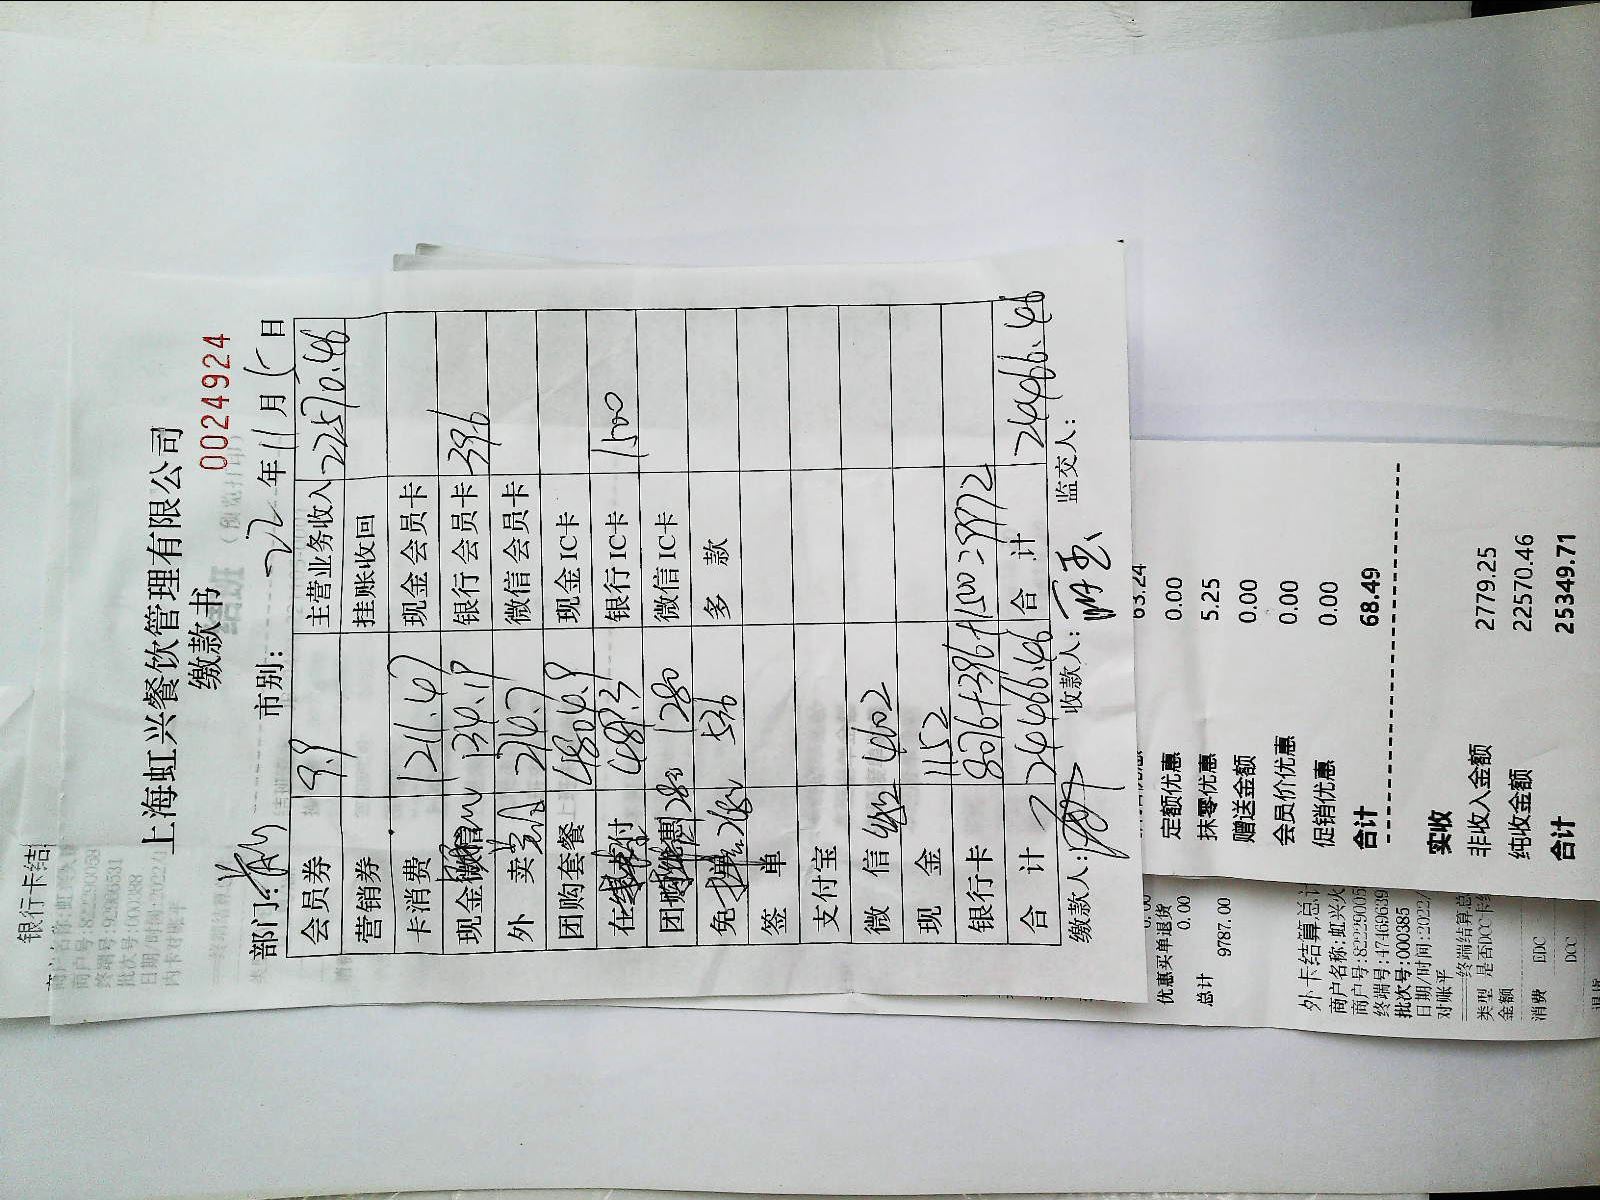 上海虹兴餐饮管理有限公司
缴款书
0024924
部门: 市别: 22年11月15日
会员券 9.9 主营业务收入 22570.46
营销券 挂账收回
卡消费 1211.47 现金会员卡
134.19 银行会员卡 396
外卖 214.7 微信会员卡
团购套餐 4804.9 现金IC卡
489.3 银行IC卡 1500
1280 微信IC卡
536 多款
签单
支付宝
微信 4402
现金 1152
银行卡 8076+396+1500=9972
合计 24466.46 合计 24466.46
缴款人: 收款人: 监交人:
63.24
定额优惠 0.00
抹零优惠 5.25
赠送金额 0.00
会员价优惠 0.00
促销优惠 0.00
合计 68.49
实收
非收入金额 2779.25
纯收金额 22570.46
合计 25349.71
优惠买单退货
0.00
总计 9787.00
外卡结算总计
商户名称:虹兴火
商户号:82229005
终端号:47469639
批次号:000385
日期/时间:2022/
对账平
终端结算总
类型 是否DCC卡
金额
消费 EDC
DCC
银行卡结
商户号:82229005
终端号:92866531
批次号:000388
日期/时间:2022/1
内卡对账平